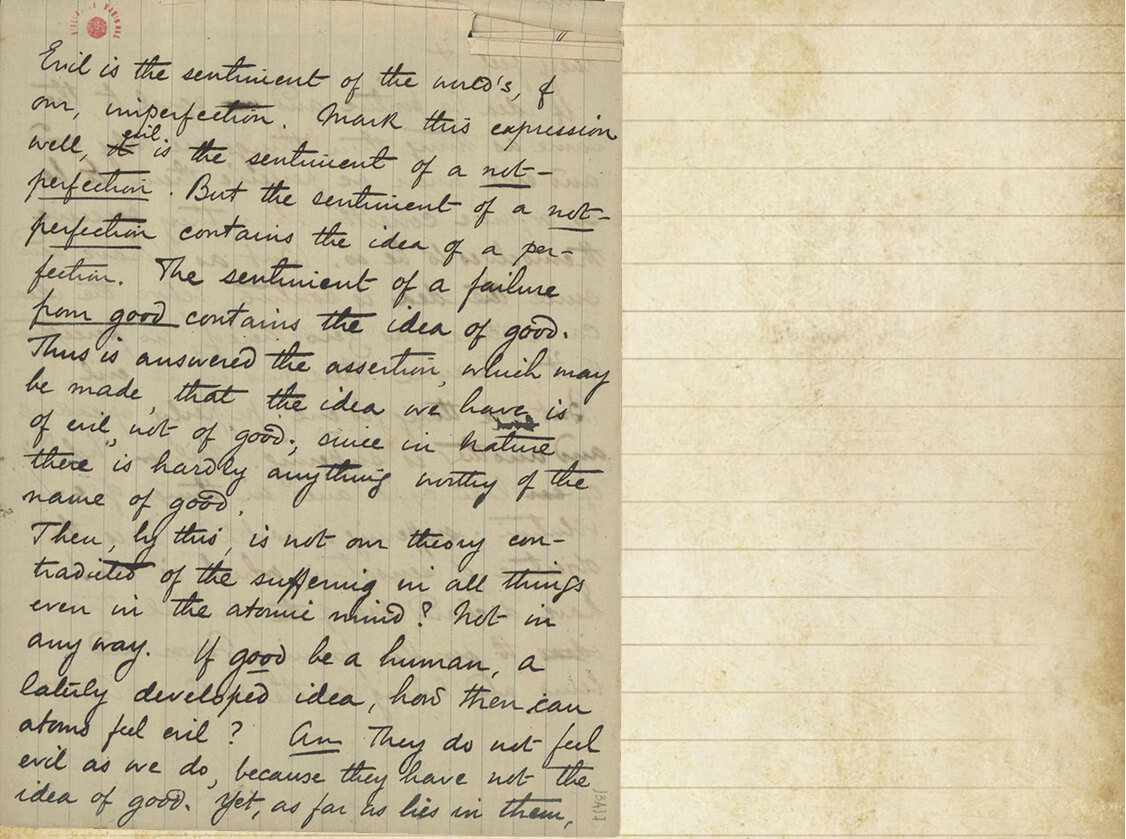 BIBLIOTECA NACIONAL
Evil is the sentiment of the world's, &
our, imperfection. Mark this expression
well, it evil is the sentiment of a not-
perfection. But the sentiment of a not-
perfection contains the idea of a per-
fection. The sentiment of a failure
from good contains the idea of good.
Thus is answered the assertion, which may
be made, that the idea we have is
of evil, not of good; since in nature
there is hardly anything worthy of the
name of good.
Then, by this, is not our theory con-
tradicted of the suffering in all things
even in the atomic mind? Not in
any way. If good be a human, a
lately developed idea, how then can
atoms feel evil? An They do not feel
evil as we do, because they have not the
idea of good. Yet, as far as lies in them,